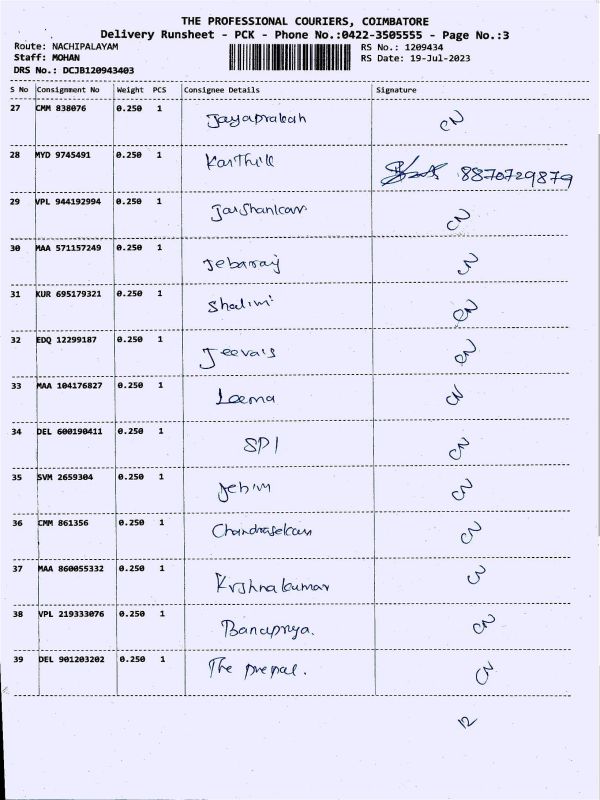 THE PROFESSIONAL COURIERS, COIMBATORE
Delivery Runsheet - PCK - Phone No.:0422-3505555 - Page No.:3
Route: NACHIPALAYAM RS No.: 1209434
Staff: MOHAN RS Date: 19-Jul-2023
DRS No.: DCJB120943403
S No Consignment No Weight PCS Consignee Details Signature
27 CMM 838076 0.250 1 Jayaprakash CN
28 MYD 9745491 0.250 1 Karthik 8870729879
29 VPL 944192994 0.250 1 Jaishankar CN
30 MAA 571157249 0.250 1 Jebaraj CN
31 KUR 695179321 0.250 1 Shalini CN
32 EDQ 12299187 0.250 1 CN
33 MAA 104176827 0.250 1 Leema CN
34 DEL 600190411 0.250 1 SPI CN
35 SVM 2659304 0.250 1 Jebin CN
36 CMM 861356 0.250 1 Chandrasekar CN
37 MAA 860055332 0.250 1 Krishnakumar CN
38 VPL 219333076 0.250 1 Banupriya. CN
39 DEL 901203202 0.250 1 The CN
12